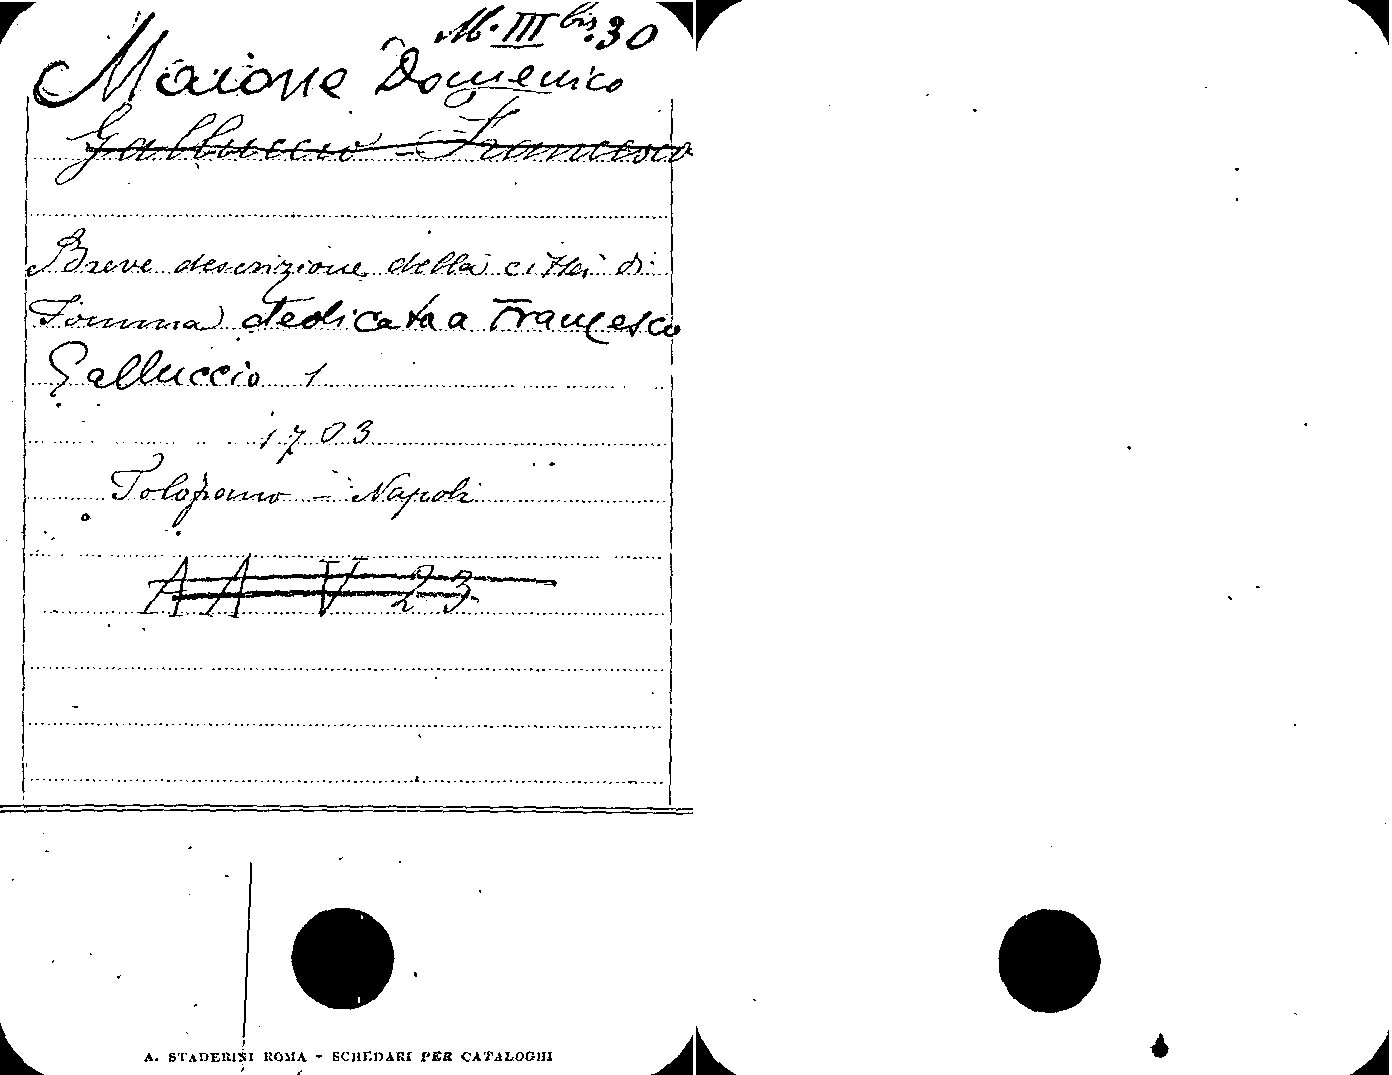 M. III bis. 30
Maione Domenico
Galluccio - Francesco
Breve descrizione della città di
Somma dedicata a Francesco
Galluccio 1
1703
- Napoli
A A V 23
A. STADERINI ROMA - SCHEDARI PER CATALOGHI